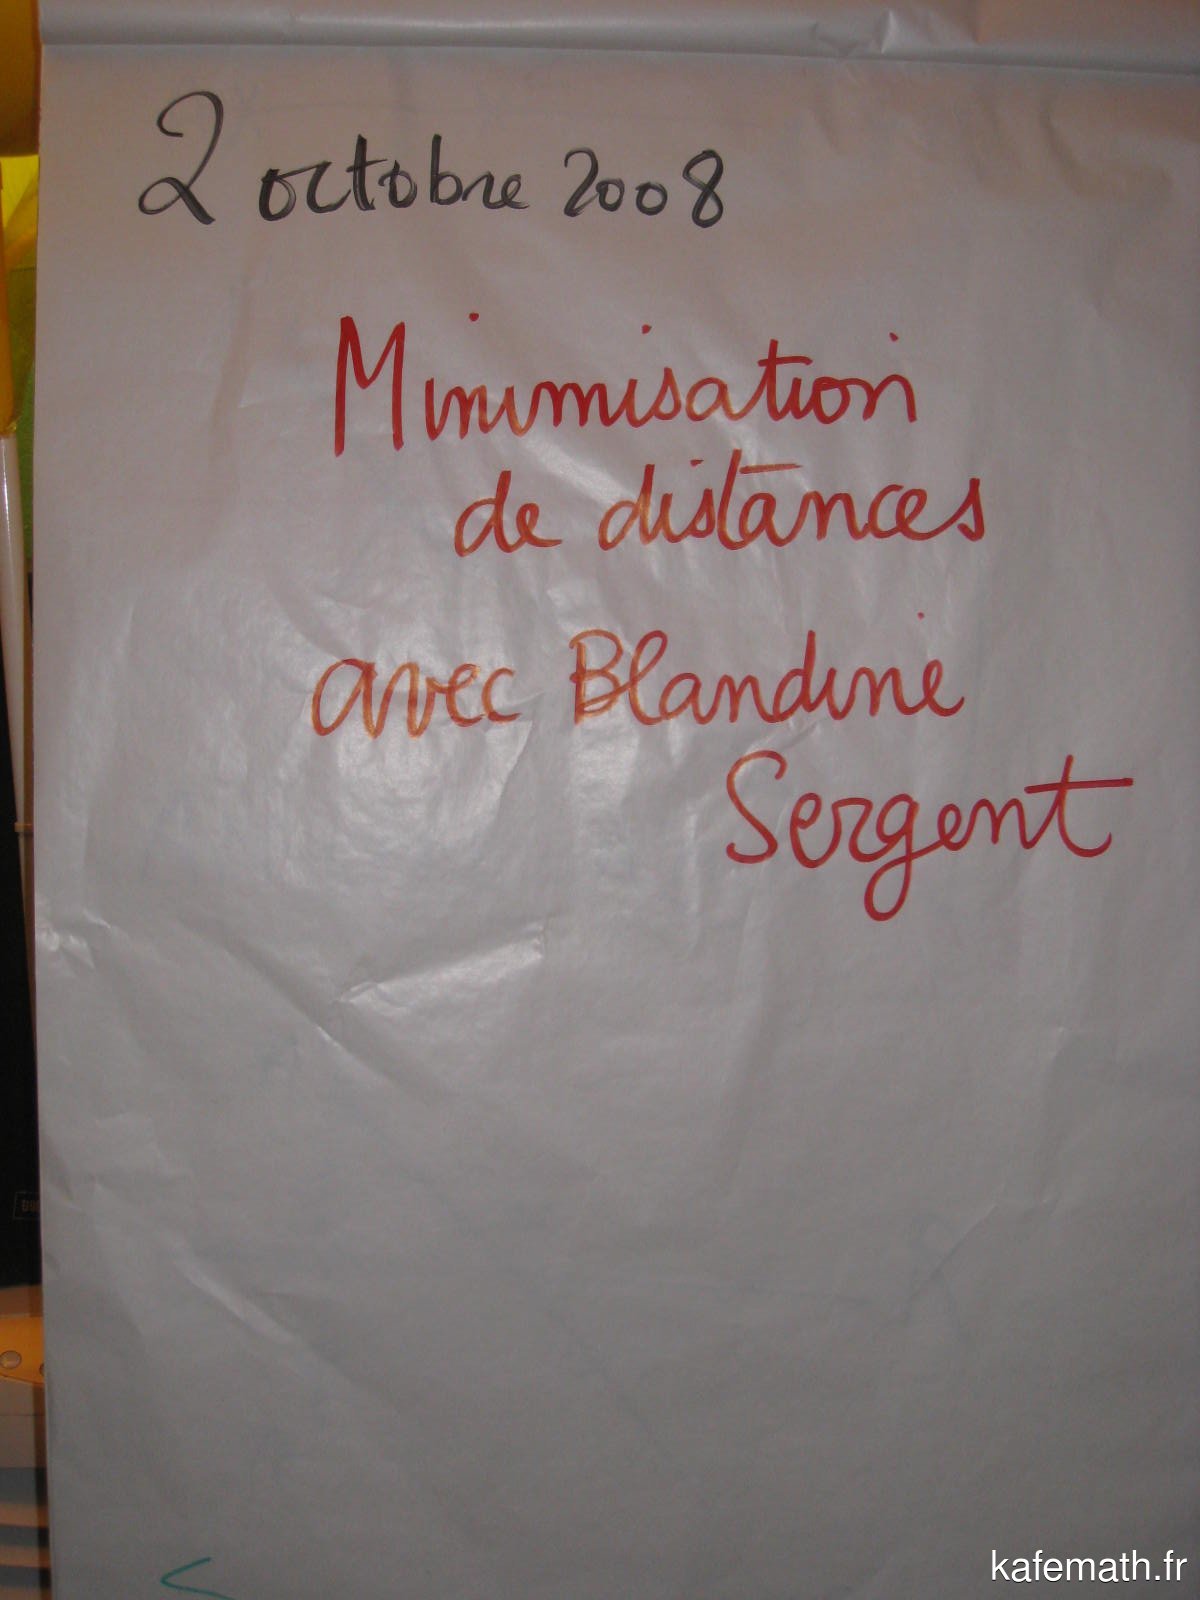 2 octobre 2008
Minimisation
de distances
avec Blandine
Sergent
kafemath.fr